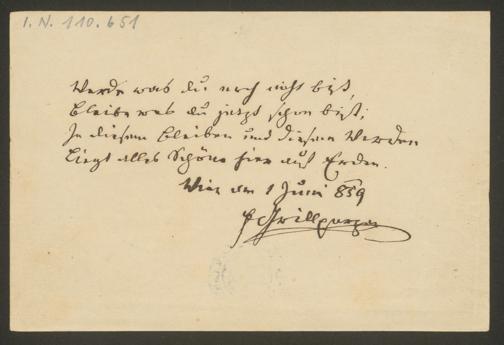 I. N. 110.651
Werde was du noch nicht bist,
Bleibe was du jetzt schon bist;
In diesem Bleiben und diesem Werden
Liegt alles Schöne hier auf Erden.
Wien am 1 Juni 859
F Grillparzer